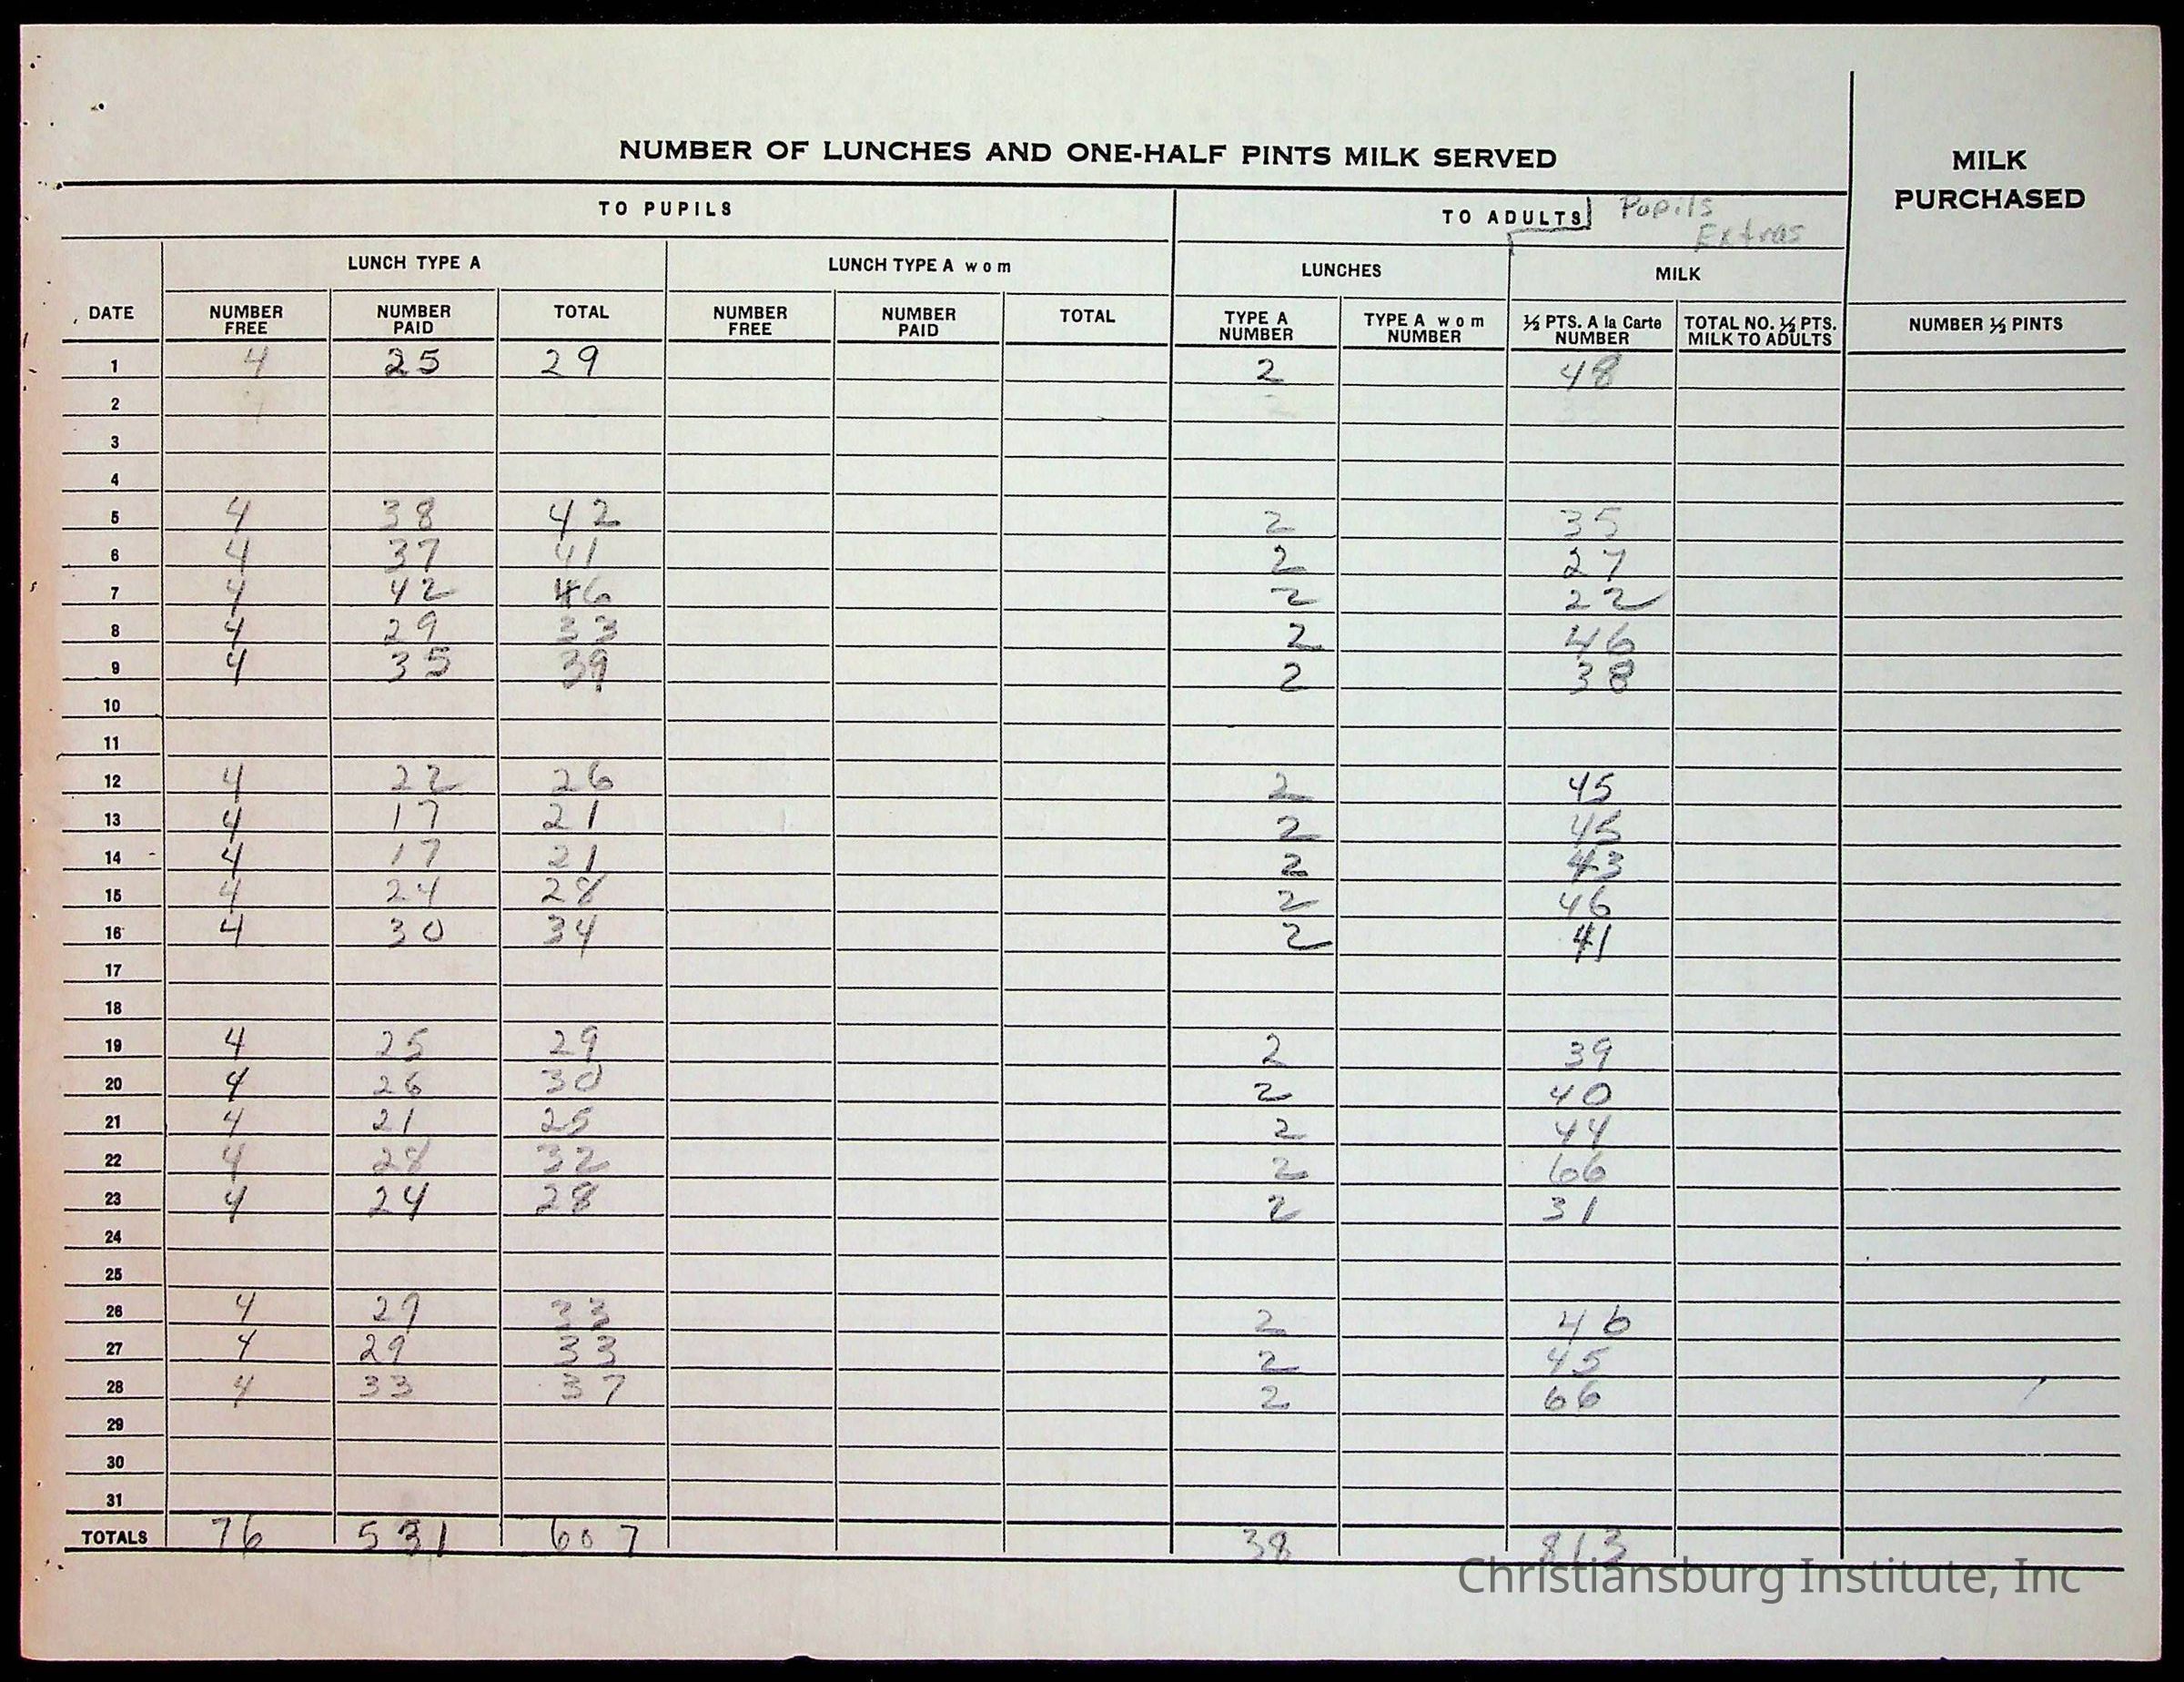 NUMBER OF LUNCHES AND ONE-HALF PINTS MILK SERVED
MILK PURCHASED
TO PUPILS
TO ADULTS
Pupils
Extras
LUNCH TYPE A
LUNCH TYPE A w o m
LUNCHES
MILK
DATE NUMBER FREE NUMBER PAID TOTAL NUMBER FREE NUMBER PAID TOTAL TYPE A NUMBER TYPE A w o m NUMBER ½ PTS. A la Carte NUMBER TOTAL NO. ½ PTS. MILK TO ADULTS NUMBER ½ PINTS
1 4 25 29 2 48
2
3
4
5 4 38 42 2 35
6 4 37 41 2 27
7 4 42 46 2 22
8 4 29 33 2 46
9 4 35 39 2 38
10
11
12 4 22 26 2 45
13 4 17 21 2 45
14 4 17 21 2 43
15 4 24 28 2 46
16 4 30 34 2 41
17
18
19 4 25 29 2 39
20 4 26 30 2 40
21 4 21 25 2 44
22 4 28 32 2 66
23 4 24 28 2 31
24
25
26 4 29 33 2 46
27 4 29 33 2 45
28 4 33 37 2 66
29
30
31
TOTALS 76 531 607 38 813
Christiansburg Institute, Inc